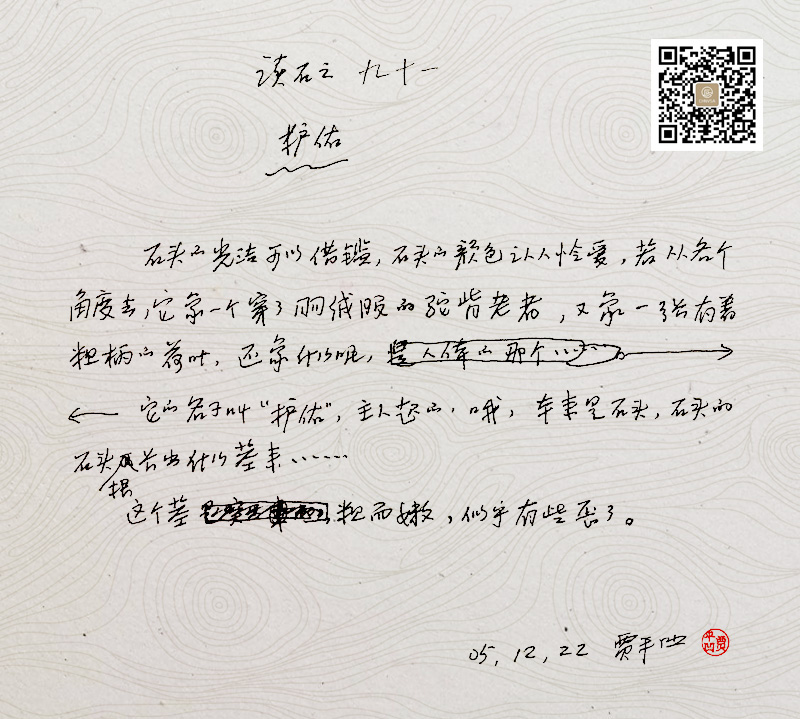 读石之 九十一
护佑
石头的光洁可以借鉴,石头的颜色让人怜爱,若从各个
角度去,它象一个穿了羽绒服的驼背老者,又象一张有着
粗柄的荷叶,还象什么呢,
它的名子叫“护佑”,主人起的,哦,本来是石头,石头的
石头根长出什么茎来……
这个茎粗而嫩,似乎有些歪了。
05,12,22 贾平凹
贾平凹